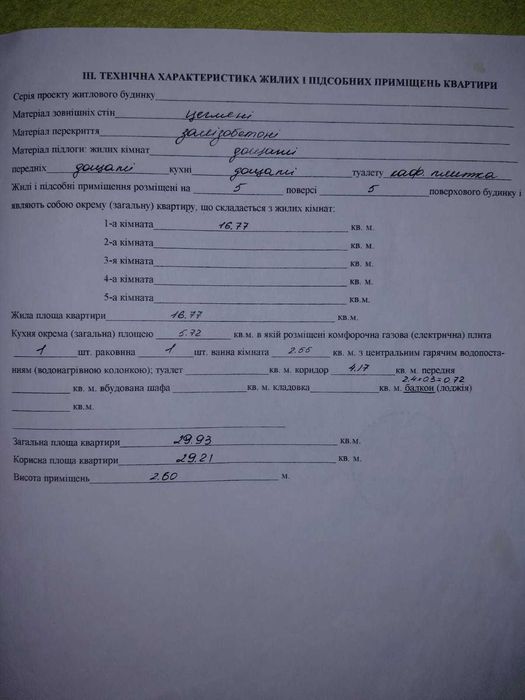 III. ТЕХНІЧНА ХАРАКТЕРИСТИКА ЖИЛИХ І ПІДСОБНИХ ПРИМІЩЕНЬ КВАРТИРИ
Серія проекту житлового будинку
Матеріал зовнішніх стін цегляні
Матеріал перекриття залізобетоні
Матеріал підлоги: жилих кімнат дощаті
передніх дощаті кухні дощаті туалету каф. плитка
Жилі і підсобні приміщення розміщені на 5 поверсі 5 поверхового будинку і
являють собою окрему (загальну) квартиру, що складається з жилих кімнат:
1-а кімната 16.77 кв. м.
2-а кімната кв. м.
3-я кімната кв. м.
4-а кімната кв. м.
5-а кімната кв.м.
Жила площа квартири 16.77 кв.м.
Кухня окрема (загальна) площею 5.72 кв.м. в якій розміщені комфорочна газова (електрична) плита
1 шт. раковина 1 шт. ванна кімната 2.55 кв. м. з центральним гарячим водопоста-
нням (водонагрівною колонкою); туалет кв. м. коридор 4.17 кв. м. передня
2.4×03=0.72
кв. м. вбудована шафа кв. м. кладовка кв. м. балкон (лоджія)
кв.м.
Загальна площа квартири 29.93 кв.м.
Корисна площа квартири 29.21 кв. м.
Висота приміщень 2.60 м.